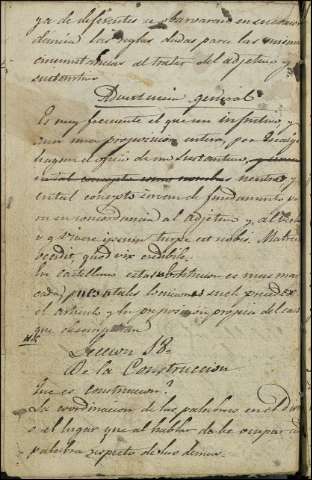 ya de diferentes se observaran en su concor
dancia las reglas dadas para las mismas
circunstancias al tratar del adjetivo y
sustantivo
Advertencia general
Es muy frecuente el que un infinitivo, y
aun una proposicion entera, por
hagan el oficio de un sustantivo,
neutro, y
en tal concepto sirvan de fundamento
en su concordancia al adjetivo y al verbo
v g vivere ipsum turpe est nobis. Matrem
occidit, quod vix credibile.
En castellano esta substitucion es mas mar
cada, pues à tales locuciones suele preceder
el articulo y la preposicion propios del caso
que desempeñan
Leccion 18ª
de la Construccion
Que es construccion?
La coordinacion de las palabras en el Discur
o el lugar que al hablar debe ocupar cada
palabra respecto de las demas.